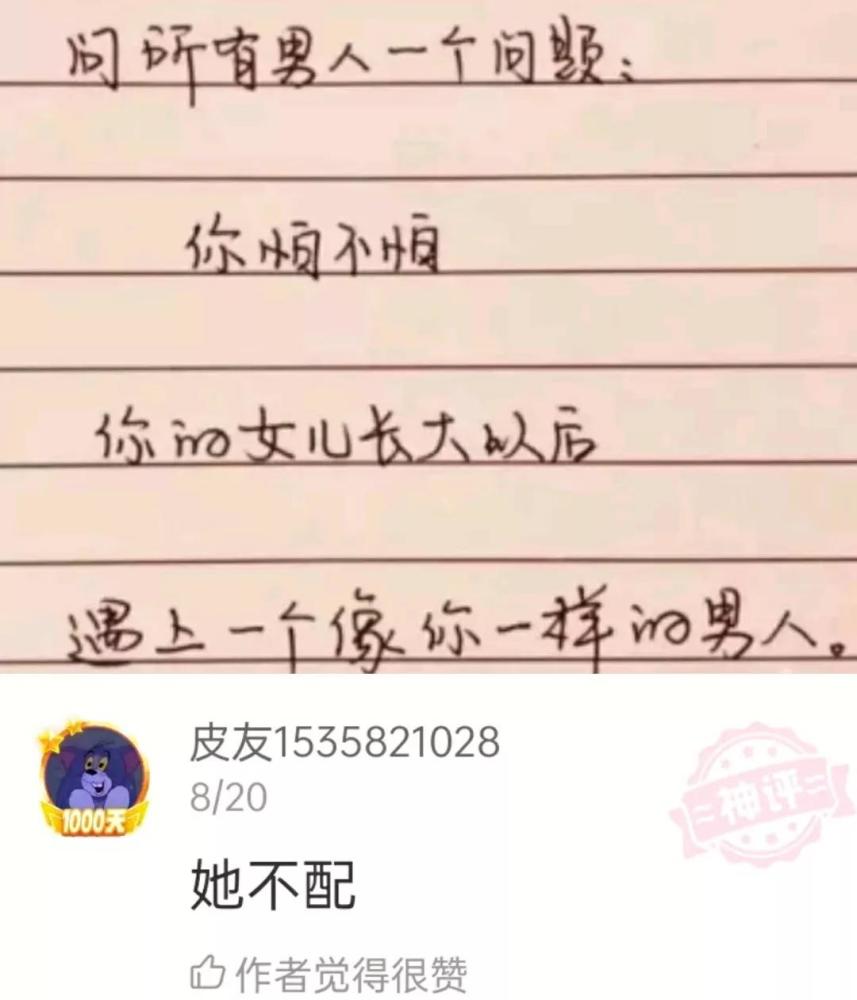 问所有男人一个问题:
你怕不怕
你的女儿长大以后
遇上一个像你一样的男人。
皮友1535821028
8/20
神评
1000天
她不配
作者觉得很赞